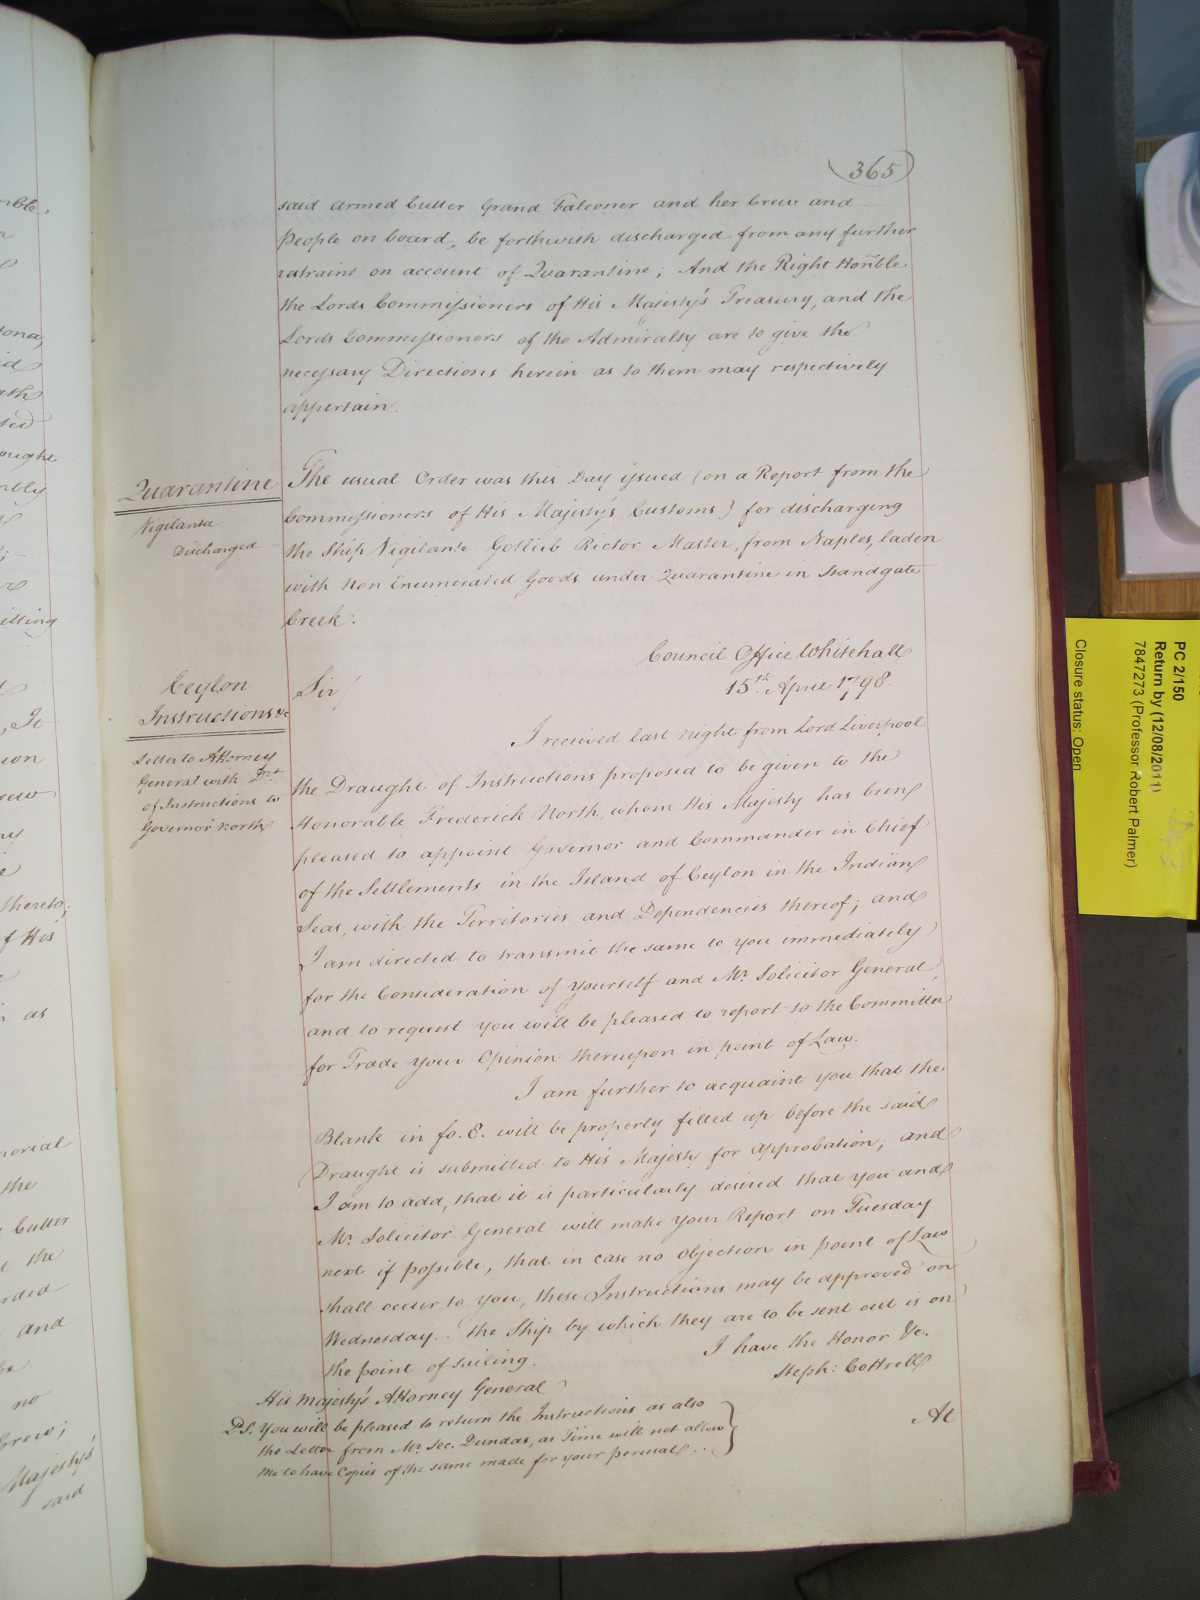 (365)
said armed Cutter Grand Falconer and her Crew and
People on board, be forthwith discharged from any further
ratraint on account of Quarantine; And the Right Honble
the Lords Commissioners of His Majesty's Treasury, and the
Lords Commissioners of the Admiralty are to give the
necessary Directions herein as to them may respectively
appertain.
Quarantine
Vigilanta
Discharged
The usual Order was this Day issued (on a Report from the
Commissioners of His Majesty's Customs) for discharging
the Ship Vigilante Gotlieb Rictor Master, from Naples, laden
with Non Enumerated Goods under Quarantine in Standgate
Creek.
Council Office Whitehall
15th April 1798.
Ceylon
Instructions &c
Letter to Attorney
General with Drt
of Instructions to
Governor North
Sir/
I received last Night from Lord Liverpool
the Draught of Instructions proposed to be given to the
Honorable Frederick North, whom His Majesty has been
pleased to appoint Governor and Commander in Chief
of the Settlements in the Island of Ceylon in the Indian
Seas, with the Territories and Dependencies thereof; and
I am directed to transmit the same to you immediately
for the Consideration of yourself and Mr. Solicitor General
and to request you will be pleased to report to the Committee
for Trade your Opinion thereupon in point of Law.
I am further to acquaint you that the
Blank in fo. 8. will be properly filled up before the said
Draught is submitted to His Majesty for Approbation; and
I am to add, that it is particularly desired that you and
Mr. Solicitor General will make your Report on Tuesday
next if possible, that in case no objection in point of Law
shall occur to you, these Instructions may be approved on
Wednesday. the Ship by which they are to be sent out is on
the point of sailing.
I have the Honor &c.
Steph: Cottrell
His Majesty's Attorney General
P.S. You will be pleased to return the Instructions as also
the Letter from Mr. Sec. Dundas, as Time will not allow
me to have Copies of the same made for your perusal..
At
PC 2/150
Return by (12/08/2011)
7847273 (Professor Robert Palmer)
Closure status: Open
thereto,
of His
as
morial
the
Cutter
the
and
no
Crew;
Majesty's
said